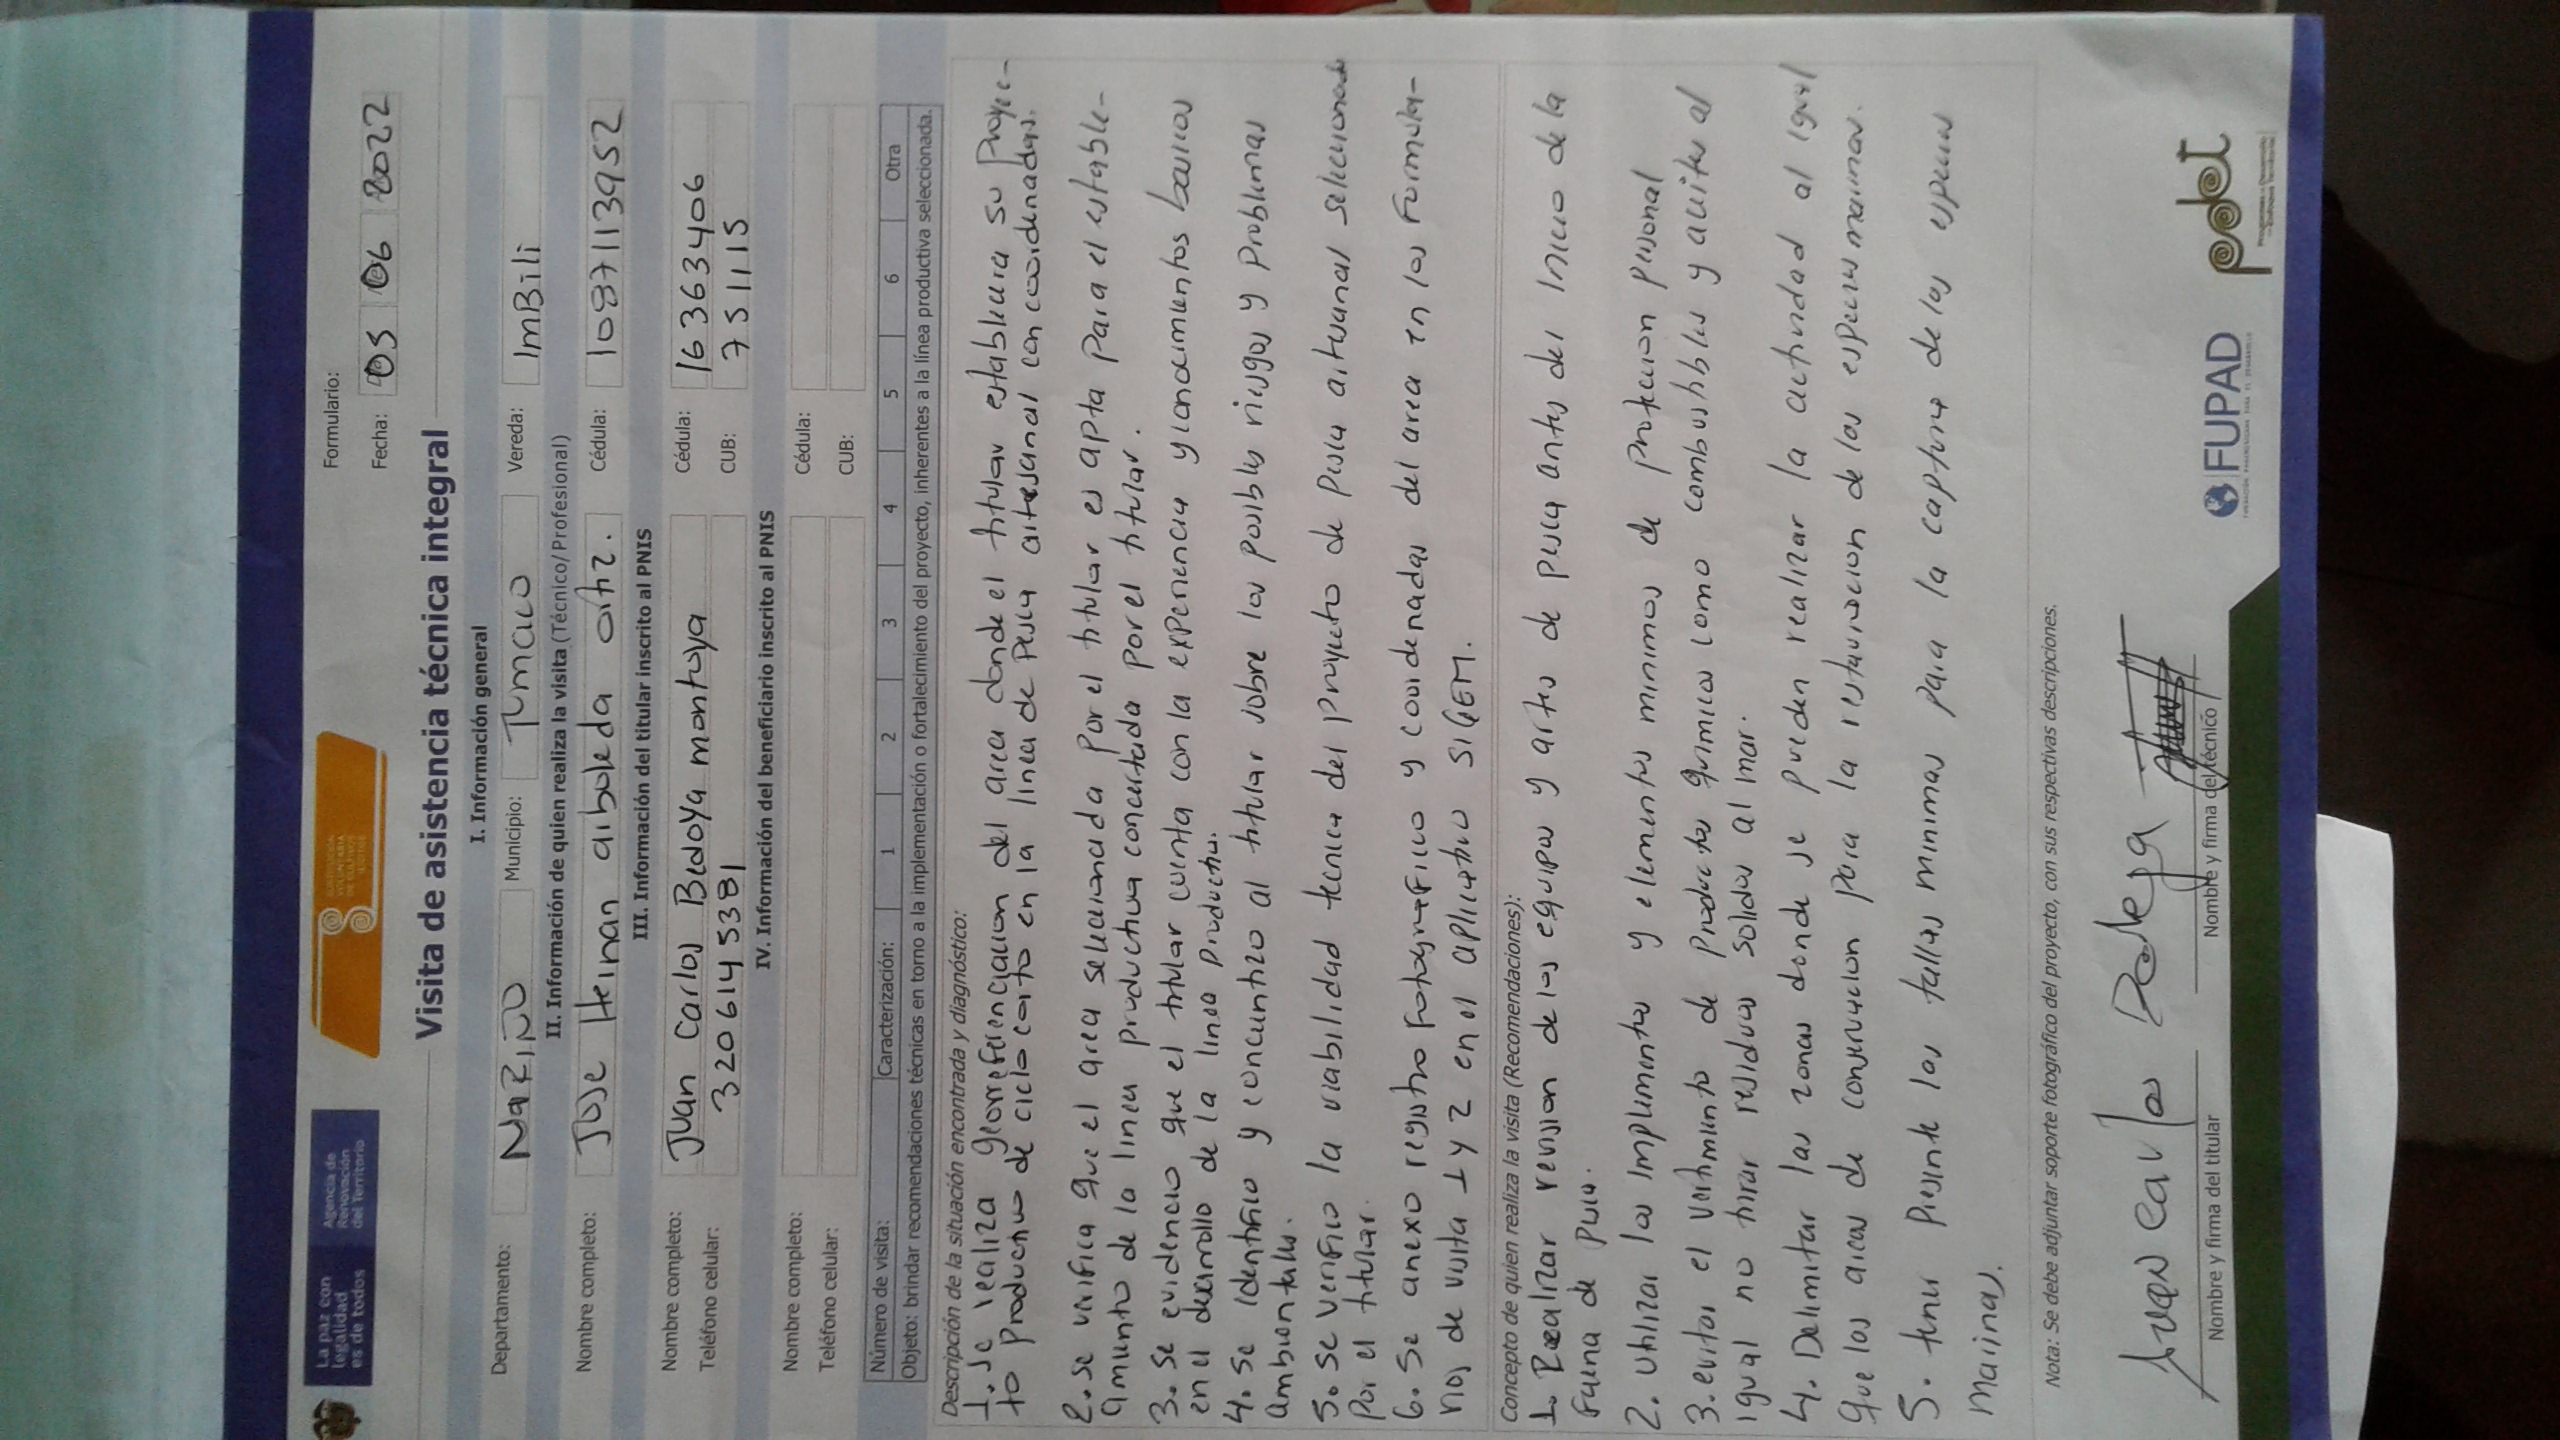 La paz con
legalidad
es de todos
Agencia de
Renovación
del Territorio
SUSTITUCIÓN
VOLUNTARIA
DE CULTIVOS
ILÍCITOS
Formulario:
Fecha: 03 06 2022
Visita de asistencia técnica integral
I. Información general
Departamento: NaRIÑO Municipio: TUmaco Vereda: ImBili
II. Información de quien realiza la visita (Técnico/Profesional)
Nombre completo: Jose Heinan arboleda ortiz. Cédula: 1087113952
III. Información del titular inscrito al PNIS
Nombre completo: Juan Carlos Bedoya montoya Cédula: 16363406
Teléfono celular: 3206145381 CUB: 751115
IV. Información del beneficiario inscrito al PNIS
Nombre completo: Cédula:
Teléfono celular: CUB:
Número de visita: Caracterización: 1 2 3 4 5 6 Otra
Objeto: brindar recomendaciones técnicas en torno a la implementación o fortalecimiento del proyecto, inherentes a la línea productiva seleccionada.
Descripción de la situación encontrada y diagnóstico:
1. Se realiza georreferenciacion del area donde el titular establecera su proyec-
to productivo de ciclo corto en la linea de Pesca artesanal con coordenadas.
2. se verifica que el area seleccionada por el titular es apta para el estable-
cimiento de la linea productiva concertada por el titular.
3. Se evidencio que el titular cuenta con la experiencia y conocimientos basicos
en el desarrollo de la linea productiva.
4. se identifico y concientizo al titular sobre los posibles riesgos y problemas
ambientales.
5. se verifico la viabilidad tecnica del proyecto de pesca artesanal seleccionado
por el titular.
6. Se anexo registro fotografico y coordenadas del area en los formula-
rios de visita 1 y 2 en el aplicativo SIGEM.
Concepto de quien realiza la visita (Recomendaciones):
1. Realizar revision de los equipos y artes de pesca antes del inicio de la
faena de pesca.
2. Utilizar los implementos y elementos minimos de proteccion personal
3. evitar el vertimiento de productos quimicos como combustibles y aceites al
igual no tirar residuos solidos al mar.
4. Delimitar las zonas donde se pueden realizar la actividad al igual
que las areas de conservacion para la restauracion de las especies marinas.
5. tener presente las tallas minimas para la captura de las especies
marinas.
Nota: Se debe adjuntar soporte fotográfico del proyecto, con sus respectivas descripciones.
Juan carlos
Nombre y firma del titular
Nombre y firma del técnico
FUPAD
FUNDACIÓN PANAMERICANA PARA EL DESARROLLO
pdet
Programas de Desarrollo
con Enfoque Territorial